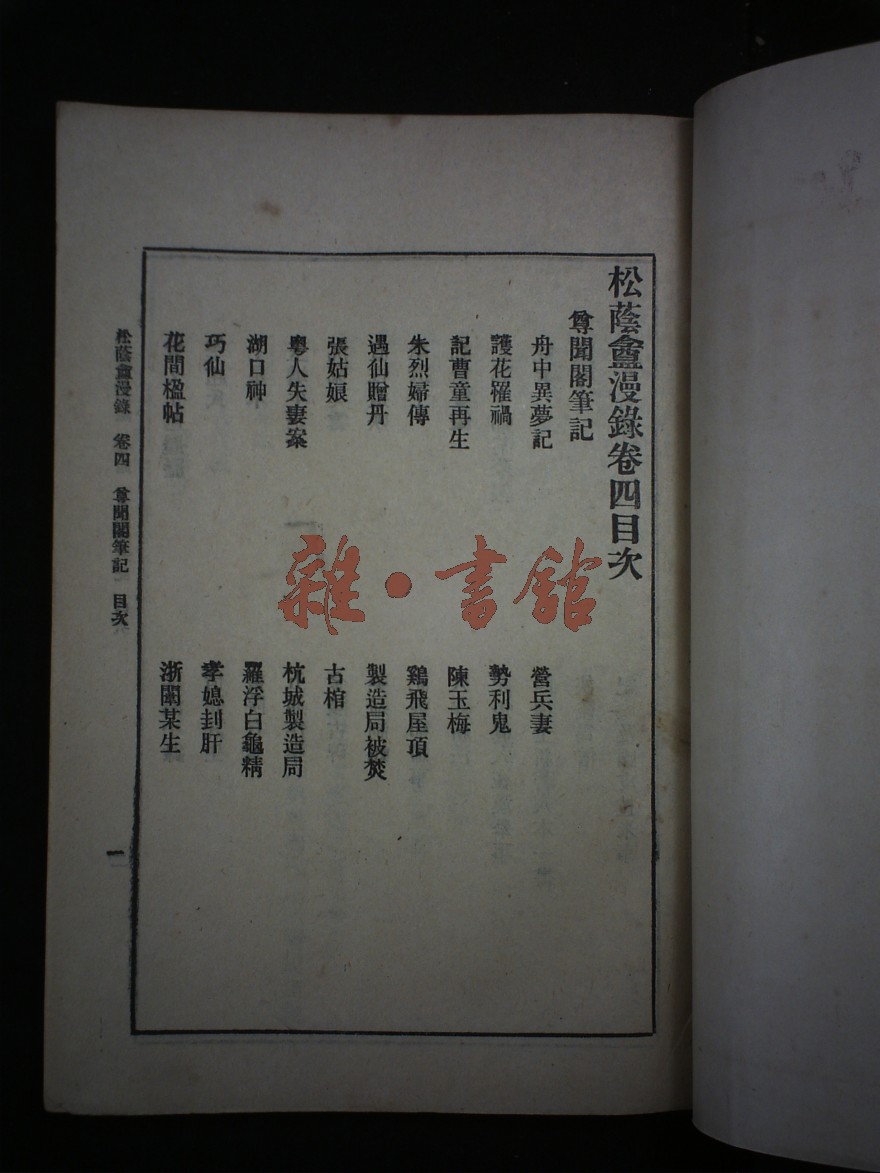 松蔭盦漫錄卷四目次
尊聞閣筆記
舟中異夢記
營兵妻
護花罹禍
勢利鬼
記曹童再生
陳玉梅
朱烈婦傳
鷄飛屋頂
遇仙贈丹
製造局被焚
張姑娘
古棺
粵人失妻案
杭城製造局
湖口神
羅浮白龜精
巧仙
孝媳刲肝
花間楹帖
浙闈某生
松蔭盦漫錄 卷四 尊聞閣筆記 目次
一
雜·書館